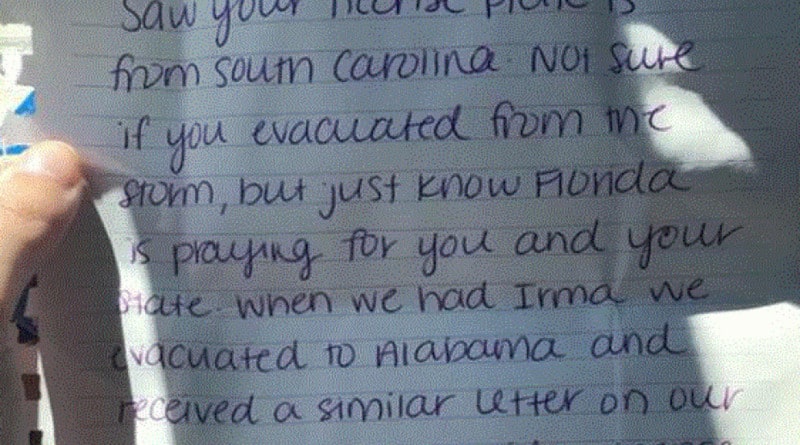 Saw your license plate is
from South Carolina. Not sure
if you evacuated from the
storm, but just know Florida
is praying for you and your
state. When we had Irma we
evacuated to Alabama and
received a similar letter on our